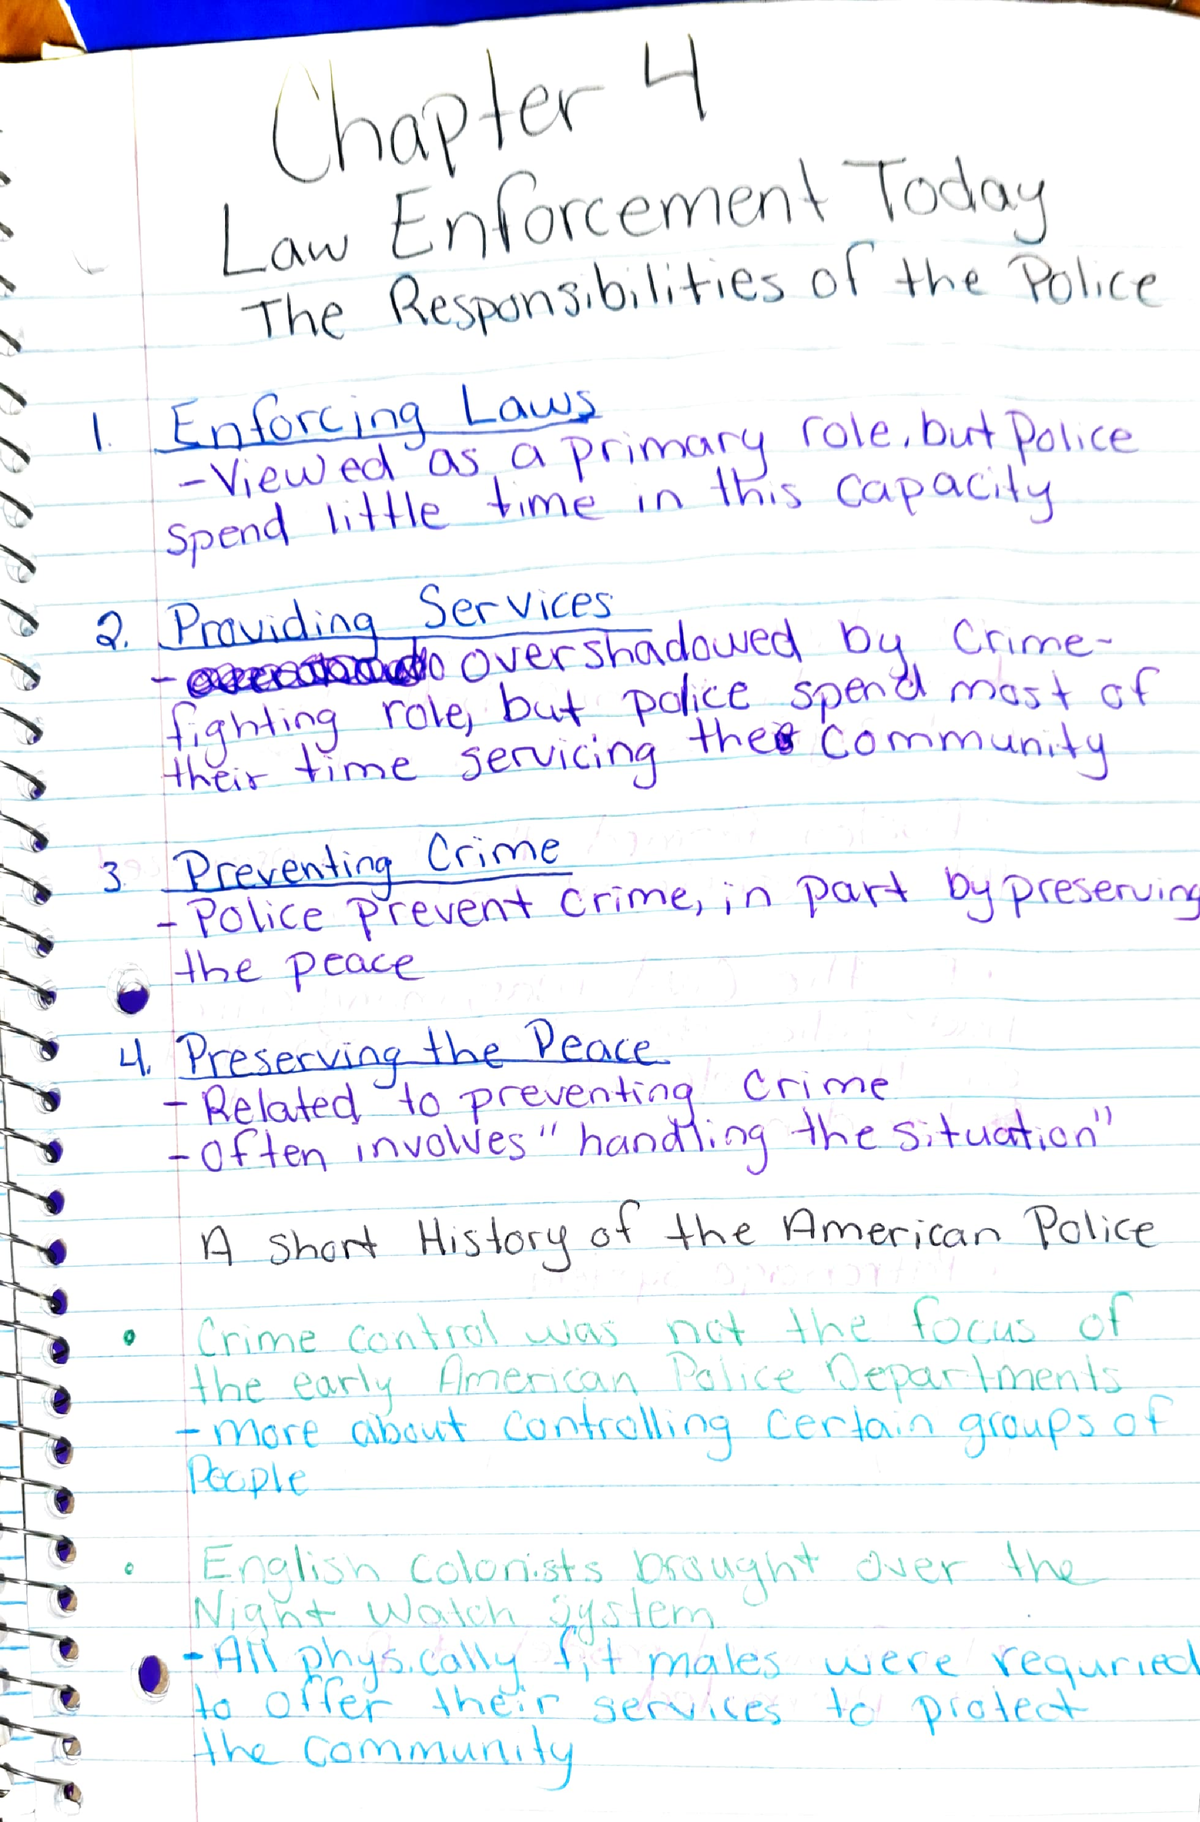 Chapter 4
Law Enforcement Today
The Responsibilities of the Police
1. Enforcing Laws
-Viewed as a primary role, but police
spend little time in this capacity
2. Providing Services
- overshadowed by crime-
fighting role, but police spend most of
their time servicing the community
3. Preventing Crime
- Police prevent crime, in part by preserving
the peace
4. Preserving the Peace
- Related to preventing crime
- Often involves "handling the situation"
A Short History of the American Police
• Crime control was not the focus of
the early American Police Departments
- more about controlling certain groups of
People
• English colonists brought over the
Night Watch System
- All physically fit males were requried
to offer their services to protect
the community